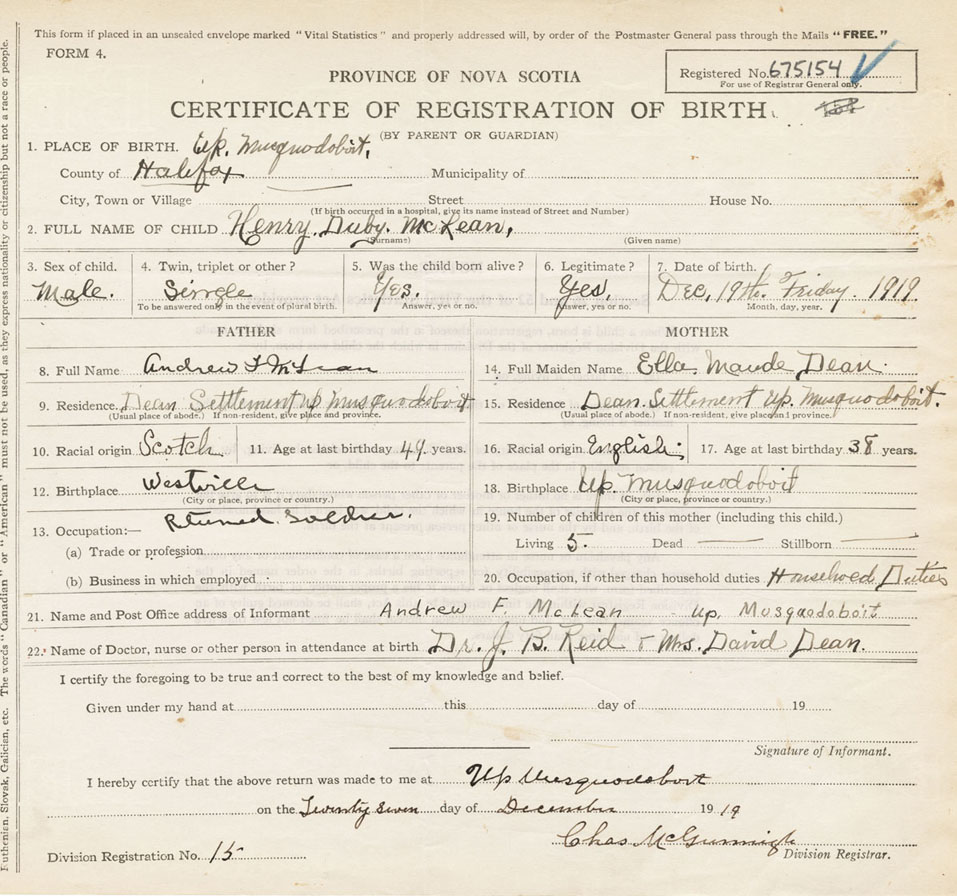 This form if placed in an unsealed envelope marked "Vital Statistics" and properly addressed will, by order of the Postmaster General pass through the Mails "FREE."
FORM 4.
Registered No. 675154
For use of Registrar General only.
PROVINCE OF NOVA SCOTIA
CERTIFICATE OF REGISTRATION OF BIRTH.
(BY PARENT OR GUARDIAN)
1. PLACE OF BIRTH. Up. Musquodoboit,
County of Halifax Municipality of
City, Town or Village Street House No.
(If birth occurred in a hospital, give its name instead of Street and Number)
2. FULL NAME OF CHILD Henry. Duby. McLean,
(Surname) (Given name)
3. Sex of child. 4. Twin, triplet or other? 5. Was the child born alive? 6. Legitimate? 7. Date of birth.
Male. Single Yes. Yes, Dec, 19th. Friday. 1919.
To be answered only in the event of plural birth. Answer, yes or no. Answer, yes or no. Month, day, year.
FATHER
8. Full Name Andrew F McLean
9. Residence. Dean Settlement up Musquodoboit
(Usual place of abode.) If non-resident, give place and province.
10. Racial origin Scotch 11. Age at last birthday 49. years.
12. Birthplace Westville
(City or place, province or country.)
13. Occupation:— Returned. Soldier.
(a) Trade or profession
(b) Business in which employed
MOTHER
14. Full Maiden Name Ella Maude Dean.
15. Residence Dean. Settlement Up. Musquodoboit.
(Usual place of abode.) If non-resident, give place and province.
16. Racial origin English. 17. Age at last birthday 38 years.
18. Birthplace Up. Musquodoboit
(City or place, province or country.)
19. Number of children of this mother (including this child.)
Living 5. Dead Stillborn
20. Occupation, if other than household duties Household Duties
21. Name and Post Office address of Informant Andrew F. McLean Up. Musquodoboit
22. Name of Doctor, nurse or other person in attendance at birth Dr. J. B. Reid & Mrs. David Dean.
I certify the foregoing to be true and correct to the best of my knowledge and belief.
Given under my hand at this day of 19
Signature of Informant.
I hereby certify that the above return was made to me at Up Musquodoboit
on the Twenty Seven day of December 1919
Chas McGunnigle
Division Registration No. 15 Division Registrar.
Ruthenian, Slovak, Galician, etc. The words "Canadian" or "American" must not be used, as they express nationality or citizenship but not a race or people.